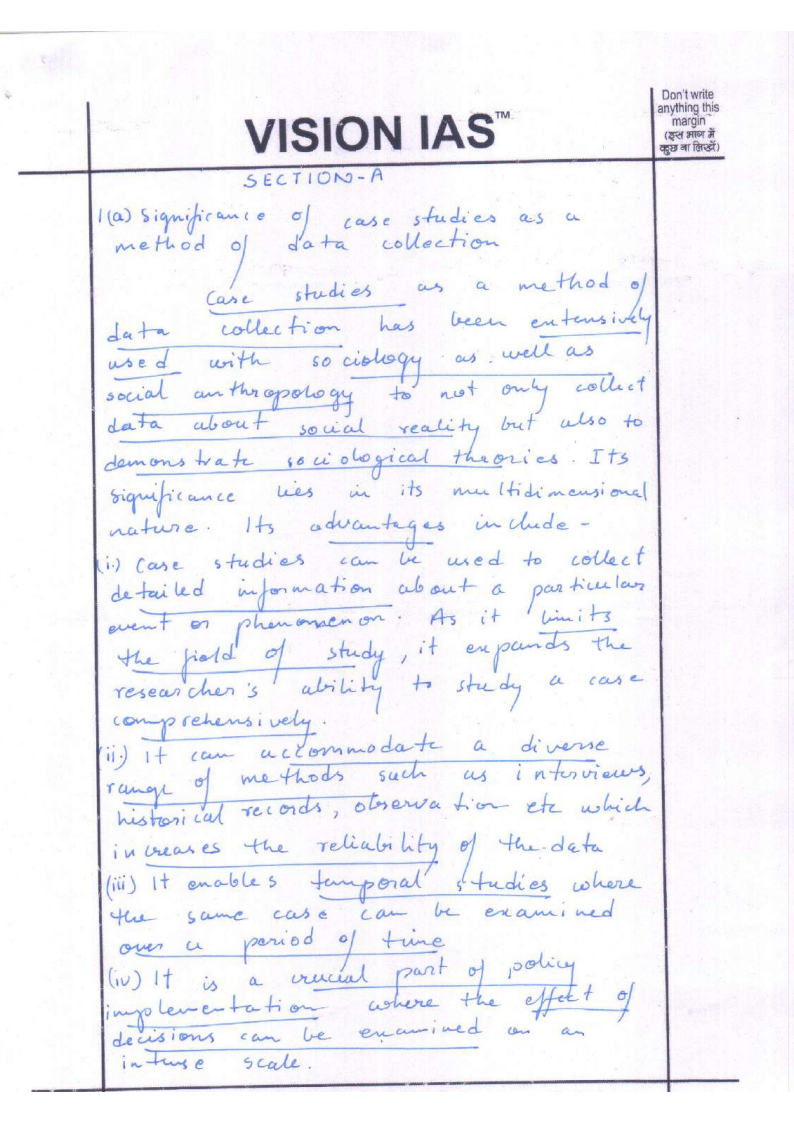 Don't write
anything this
margin
(इस भाग में
कुछ ना लिखें)
VISION IAS™
SECTION-A
1(a) Significance of case studies as a
method of data collection
Case studies as a method of
data collection has been extensively
used with sociology as well as
social anthropology to not only collect
data about social reality but also to
demonstrate sociological theories. Its
significance lies in its multidimensional
nature. Its advantages include -
(i.) Case studies can be used to collect
detailed information about a particular
event or phenomenon. As it limits
the field of study, it expands the
researcher's ability to study a case
comprehensively.
(ii.) It can accommodate a diverse
range of methods such as interviews,
historical records, observation etc which
increases the reliability of the data
(iii) It enables temporal studies where
the same case can be examined
over a period of time
(iv) It is a crucial part of policy
implementation where the effect of
decisions can be examined on an
intense scale.